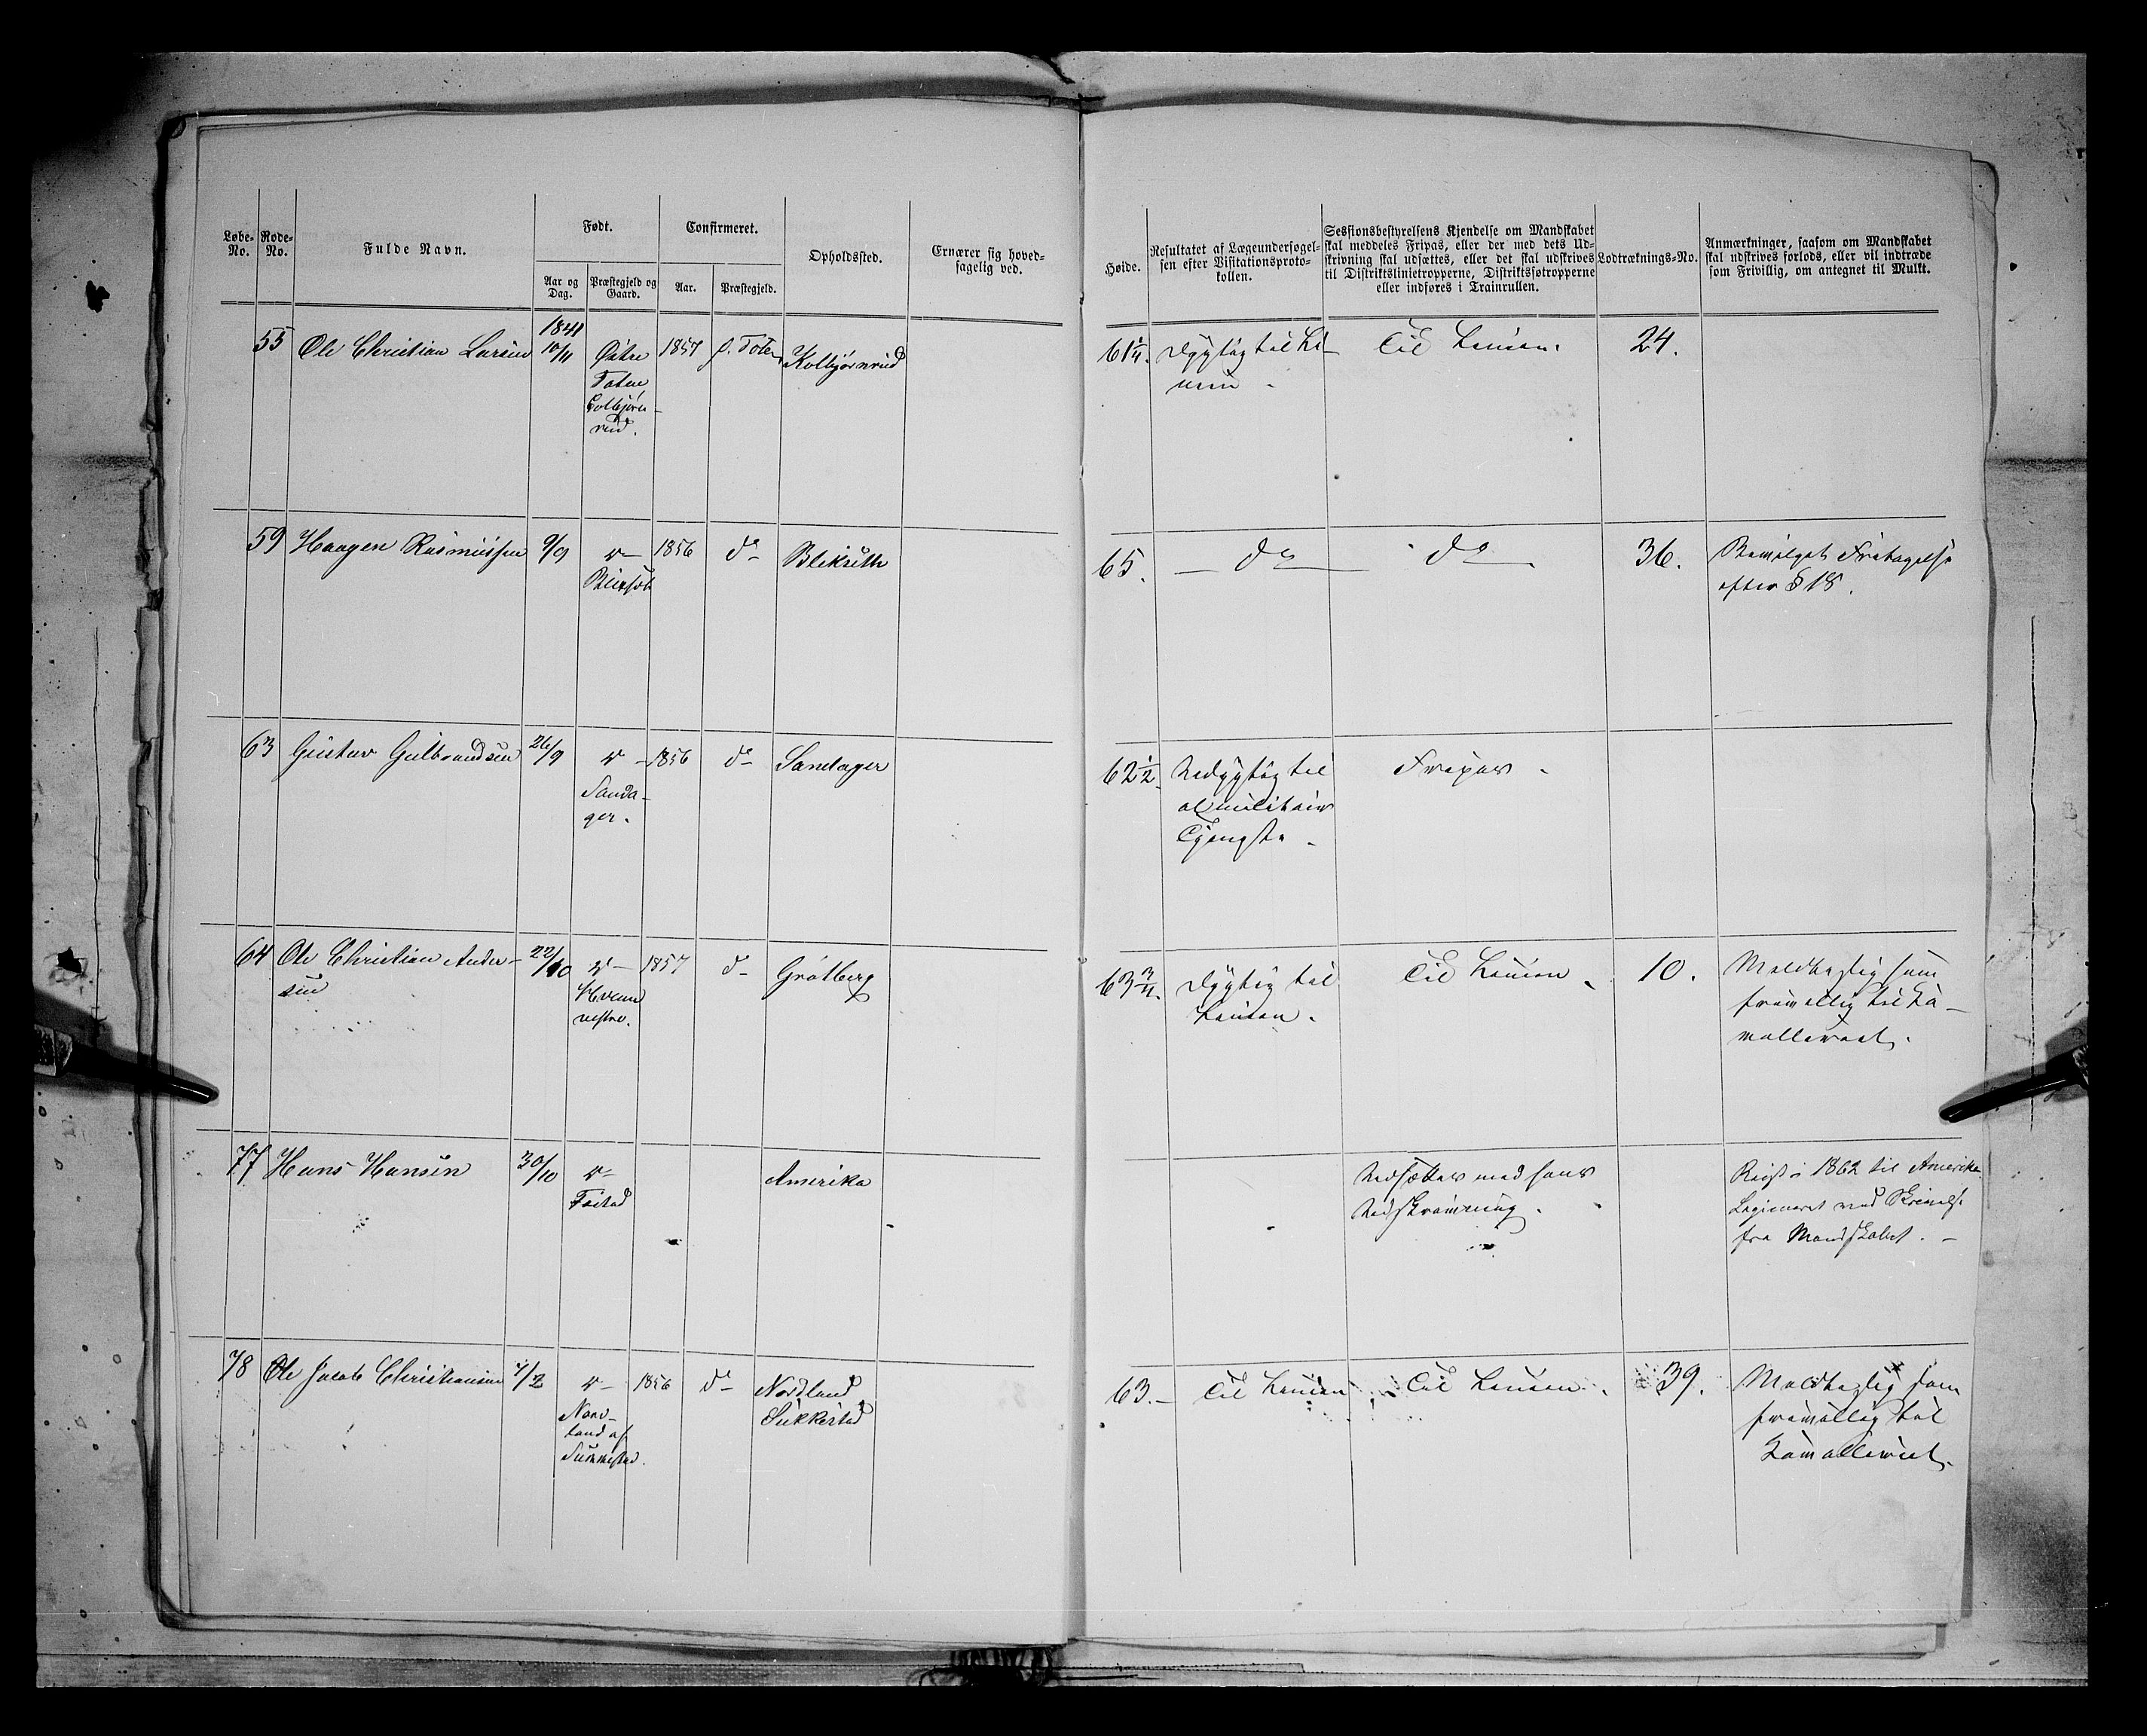 Løbe-No.
Rode-No.
Fulde Navn.
Født.
Aar og Dag.
Præstegjeld og Gaard.
Confirmeret.
Aar.
Præstegjeld.
Opholdssted.
Ernærer sig hoved-
sagelig ved.
Høide.
Resultatet af Lægeundersøgel-
sen efter Visitationsproto-
kollen.
Sessionsbestyrelsens Kjendelse om Mandskabet
skal meddeles Fripas, eller der med dets Ud-
skrivning skal udsættes, eller det skal udskrives
til Distriktslinietropperne, Distriktsføtropperne
eller indføres i Trainrullen.
Lodtræknings-No.
Anmærkninger, saasom om Mandskabet
skal udskrives forlods, eller vil indtræde
som Frivillig, om antegnet til Mulkt.
55 Ole Christian Larsen 1841 10/11 Østre 1857 Ø. Toten Kolbjørnrud 61¼. Dygtig til Li- Til Linien. 24.
Toten
Colbjørn-
rud.
nien.
59 Haagen Rasmussen 9/9 1856 do Blikseth 65. do do 36. Bevilget Fritagelse
efter § 18.
63 Gustav Gulbrandsen 26/9 1856 do Sandager 62½. Udygtig til Fripas.
Sanda-
ger.
al militair
Tjeneste.
64 Ole Christian Ander- 22/10 1857 do Grøtberg 63¾. Dygtig til Til Linien. 10. Modtagelig som
sen
vestre.
Linien.
frivillig til Ca-
valleriet.
77 Hans Hansen 30/10 Amerika Udsættes med hans Reist i 1862 til Amerika.
Udskrivning.
fra Mandskabet.
78 Ole Jacob Christiansen 7/2 1856 do Nordland 63. Til Linien Til Linien. 39. Modtagelig som
Nord-
land af
Sukkestad
frivillig til
Cavalleriet.